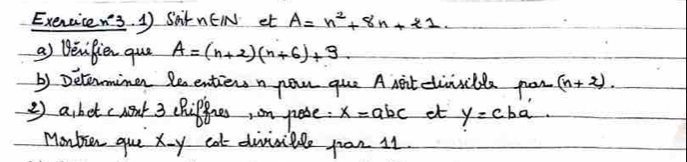 Exercice n°3. 1) Soit n∈IN et A = n² + 8n + 21.
a) Vérifier que A = (n+2)(n+6)+9.
b) Déterminer les entiers n pour que A soit divisible par (n+2).
2) a, b et c sont 3 chiffres, on pose : X = abc et y = cba.
Montrer que X-y est divisible par 11.